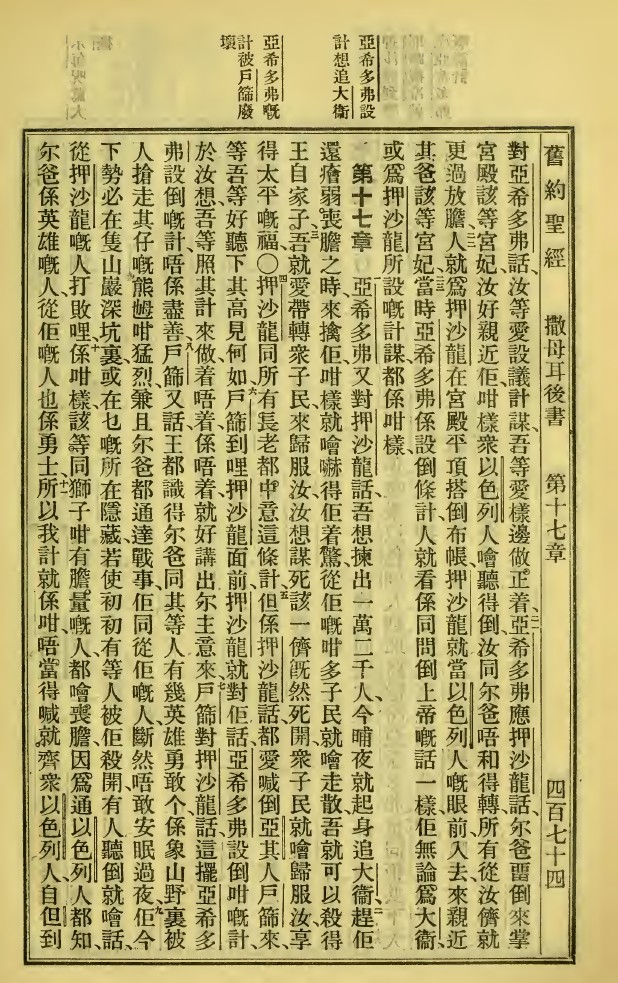 舊約聖經　撒母耳後書　第十七章　四百七十四
亞希多弗設
計想追大衞
亞希多弗嘅
計被戶篩廢
壞
對亞希多弗話、汝等愛設議計謀、吾等愛樣邊做正着、二一亞希多弗應押沙龍話、尔爸畱倒來掌
宮殿該等宮妃、汝好親近佢、咁樣衆以色列人噲聽得倒、汝同尔爸唔和得轉、所有從汝儕就
更過放膽、二二人就爲押沙龍在宮殿平頂搭倒布帳、押沙龍就當以色列人嘅眼前入去來親近
其爸該等宮妃、二三當時亞希多弗係設倒條計、人就看係同問倒上帝嘅話一樣、佢無論爲大衞、
或爲押沙龍所設嘅計謀、都係咁樣、
第十七章　亞希多弗又對押沙龍話、吾想揀出一萬二千人、今晡夜就起身追大衞、二趕佢
還癐弱喪膽之時來擒佢、咁樣就噲嚇得佢着驚、從佢嘅咁多子民就噲走散、吾就可以殺得
王自家子、三吾就愛帶轉衆子民來歸服汝、汝想謀死該一儕、旣然死開、衆子民就噲歸服汝、享
得太平嘅福、〇四押沙龍同所有長老都中意這條計、五但係押沙龍話、都愛喊倒亞其人戶篩來、
等吾等好聽下其高見何如、六戶篩到哩押沙龍面前、押沙龍就對佢話、亞希多弗設倒咁嘅計、
於汝想、吾等照其計來做着唔着、係唔着就好講出尔主意來、七戶篩對押沙龍話、這擺亞希多
弗設倒嘅計、唔係盡善、八戶篩又話、王都識得尔爸同其等人有幾英雄勇敢个、係象山野裏被
人搶走其仔嘅熊乸咁猛烈、兼且尔爸都通達戰事、佢同從佢嘅人、斷然唔敢安眠過夜、九佢今
下勢必在隻山巖深坑裏、或在乜嘅所在隱藏、若使初初有等人被佢殺開、有人聽倒就噲話、
從押沙龍嘅人打敗哩、十係咁樣、該等同獅子咁有膽量嘅人、都噲喪膽、因爲通以色列人都知、
尔爸係英雄嘅人、從佢嘅人也係勇士、十一所以我計就係咁、唔當得喊就齊衆以色列人、自但到